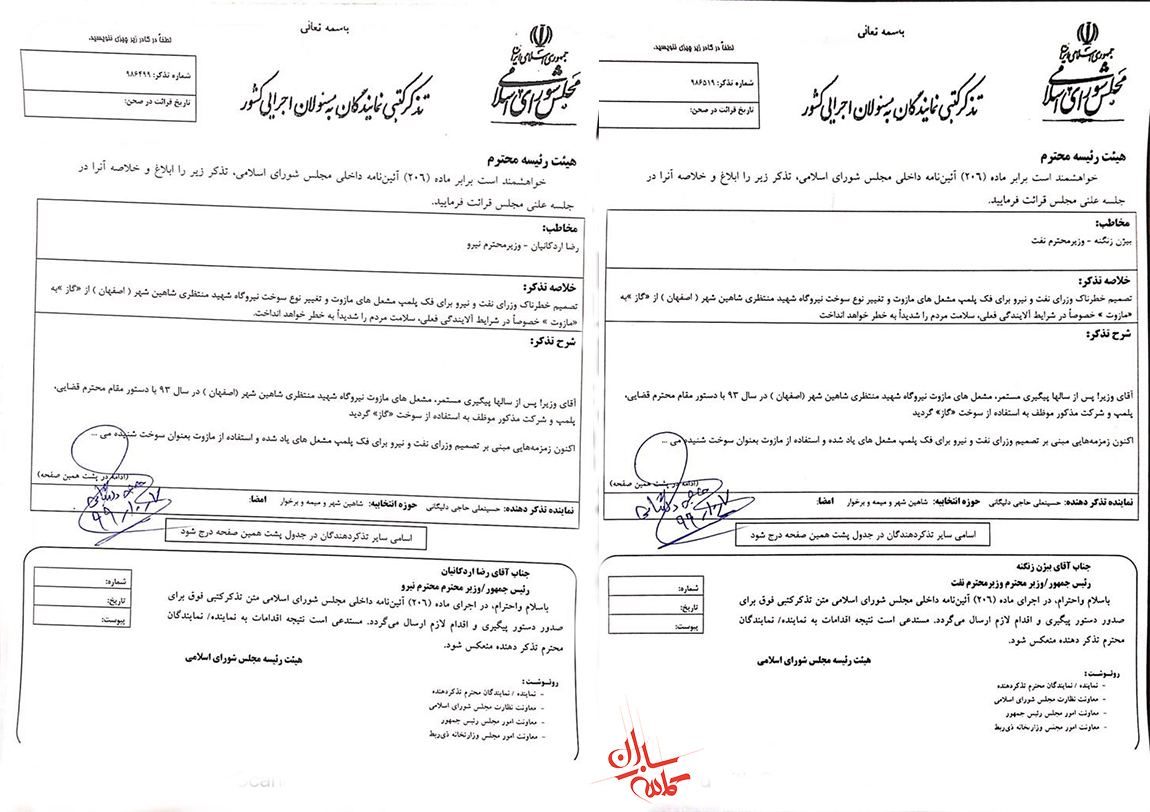 باسمه تعالی
جمهوری اسلامی ایران
مجلس شورای اسلامی
لطفاً در کادر زیر چیزی ننویسید.
شماره تذکر: ۹۸۶۵۱۹
تاریخ قرائت در صحن:
تذکر کتبی نمایندگان به مسئولان اجرایی کشور
هیئت رئیسه محترم
خواهشمند است برابر ماده (۲۰۶) آئین‌نامه داخلی مجلس شورای اسلامی، تذکر زیر را ابلاغ و خلاصه آنرا در
جلسه علنی مجلس قرائت فرمایید.
مخاطب:
بیژن زنگنه - وزیرمحترم نفت
خلاصه تذکر:
تصمیم خطرناک وزرای نفت و نیرو برای فک پلمپ مشعل های مازوت و تغییر نوع سوخت نیروگاه شهید منتظری شاهین شهر ( اصفهان ) از «گاز »به
«مازوت » خصوصاً در شرایط آلایندگی فعلی، سلامت مردم را شدیداً به خطر خواهد انداخت
شرح تذکر:
آقای وزیر! پس از سالها پیگیری مستمر، مشعل های مازوت نیروگاه شهید منتظری شاهین شهر (اصفهان ) در سال ۹۳ با دستور مقام محترم قضایی،
پلمپ و شرکت مذکور موظف به استفاده از سوخت «گاز» گردید
اکنون زمزمه‌هایی مبنی بر تصمیم وزرای نفت و نیرو برای فک پلمپ مشعل های یاد شده و استفاده از مازوت بعنوان سوخت شنیده می ...
(ادامه در پشت همین صفحه)
نماینده تذکر دهنده: حسینعلی حاجی دلیگانی حوزه انتخابیه: شاهین شهر و میمه و برخوار امضا:
۹۹/۱۰/۷
اسامی سایر تذکردهندگان در جدول پشت همین صفحه درج شود
جناب آقای بیژن زنگنه
رئیس جمهور/وزیر محترم وزیرمحترم نفت
شماره:
تاریخ:
پیوست:
باسلام واحترام، در اجرای ماده (۲۰۶) آئین‌نامه داخلی مجلس شورای اسلامی متن تذکرکتبی فوق برای
صدور دستور پیگیری و اقدام لازم ارسال می‌گردد. مستدعی است نتیجه اقدامات به نماینده/ نمایندگان
محترم تذکر دهنده منعکس شود.
هیئت رئیسه مجلس شورای اسلامی
رونـوشـت:
- نماینده / نمایندگان محترم تذکردهنده
- معاونت نظارت مجلس شورای اسلامی
- معاونت امور مجلس رئیس جمهور
- معاونت امور مجلس وزارتخانه ذی‌ربط
باسمه تعالی
جمهوری اسلامی ایران
مجلس شورای اسلامی
لطفاً در کادر زیر چیزی ننویسید.
شماره تذکر: ۹۸۶۴۹۹
تاریخ قرائت در صحن:
تذکر کتبی نمایندگان به مسئولان اجرایی کشور
هیئت رئیسه محترم
خواهشمند است برابر ماده (۲۰۶) آئین‌نامه داخلی مجلس شورای اسلامی، تذکر زیر را ابلاغ و خلاصه آنرا در
جلسه علنی مجلس قرائت فرمایید.
مخاطب:
رضا اردکانیان - وزیرمحترم نیرو
خلاصه تذکر:
تصمیم خطرناک وزرای نفت و نیرو برای فک پلمپ مشعل های مازوت و تغییر نوع سوخت نیروگاه شهید منتظری شاهین شهر ( اصفهان ) از «گاز »به
«مازوت » خصوصاً در شرایط آلایندگی فعلی، سلامت مردم را شدیداً به خطر خواهد انداخت.
شرح تذکر:
آقای وزیر! پس از سالها پیگیری مستمر، مشعل های مازوت نیروگاه شهید منتظری شاهین شهر (اصفهان ) در سال ۹۳ با دستور مقام محترم قضایی،
پلمپ و شرکت مذکور موظف به استفاده از سوخت «گاز» گردید
اکنون زمزمه‌هایی مبنی بر تصمیم وزرای نفت و نیرو برای فک پلمپ مشعل های یاد شده و استفاده از مازوت بعنوان سوخت شنیده می ...
(ادامه در پشت همین صفحه)
نماینده تذکر دهنده: حسینعلی حاجی دلیگانی حوزه انتخابیه: شاهین شهر و میمه و برخوار امضا:
۹۹/۱۰/۷
اسامی سایر تذکردهندگان در جدول پشت همین صفحه درج شود
جناب آقای رضا اردکانیان
رئیس جمهور/وزیر محترم محترم نیرو
شماره:
تاریخ:
پیوست:
باسلام واحترام، در اجرای ماده (۲۰۶) آئین‌نامه داخلی مجلس شورای اسلامی متن تذکرکتبی فوق برای
صدور دستور پیگیری و اقدام لازم ارسال می‌گردد. مستدعی است نتیجه اقدامات به نماینده/ نمایندگان
محترم تذکر دهنده منعکس شود.
هیئت رئیسه مجلس شورای اسلامی
رونـوشـت:
- نماینده / نمایندگان محترم تذکردهنده
- معاونت نظارت مجلس شورای اسلامی
- معاونت امور مجلس رئیس جمهور
- معاونت امور مجلس وزارتخانه ذی‌ربط